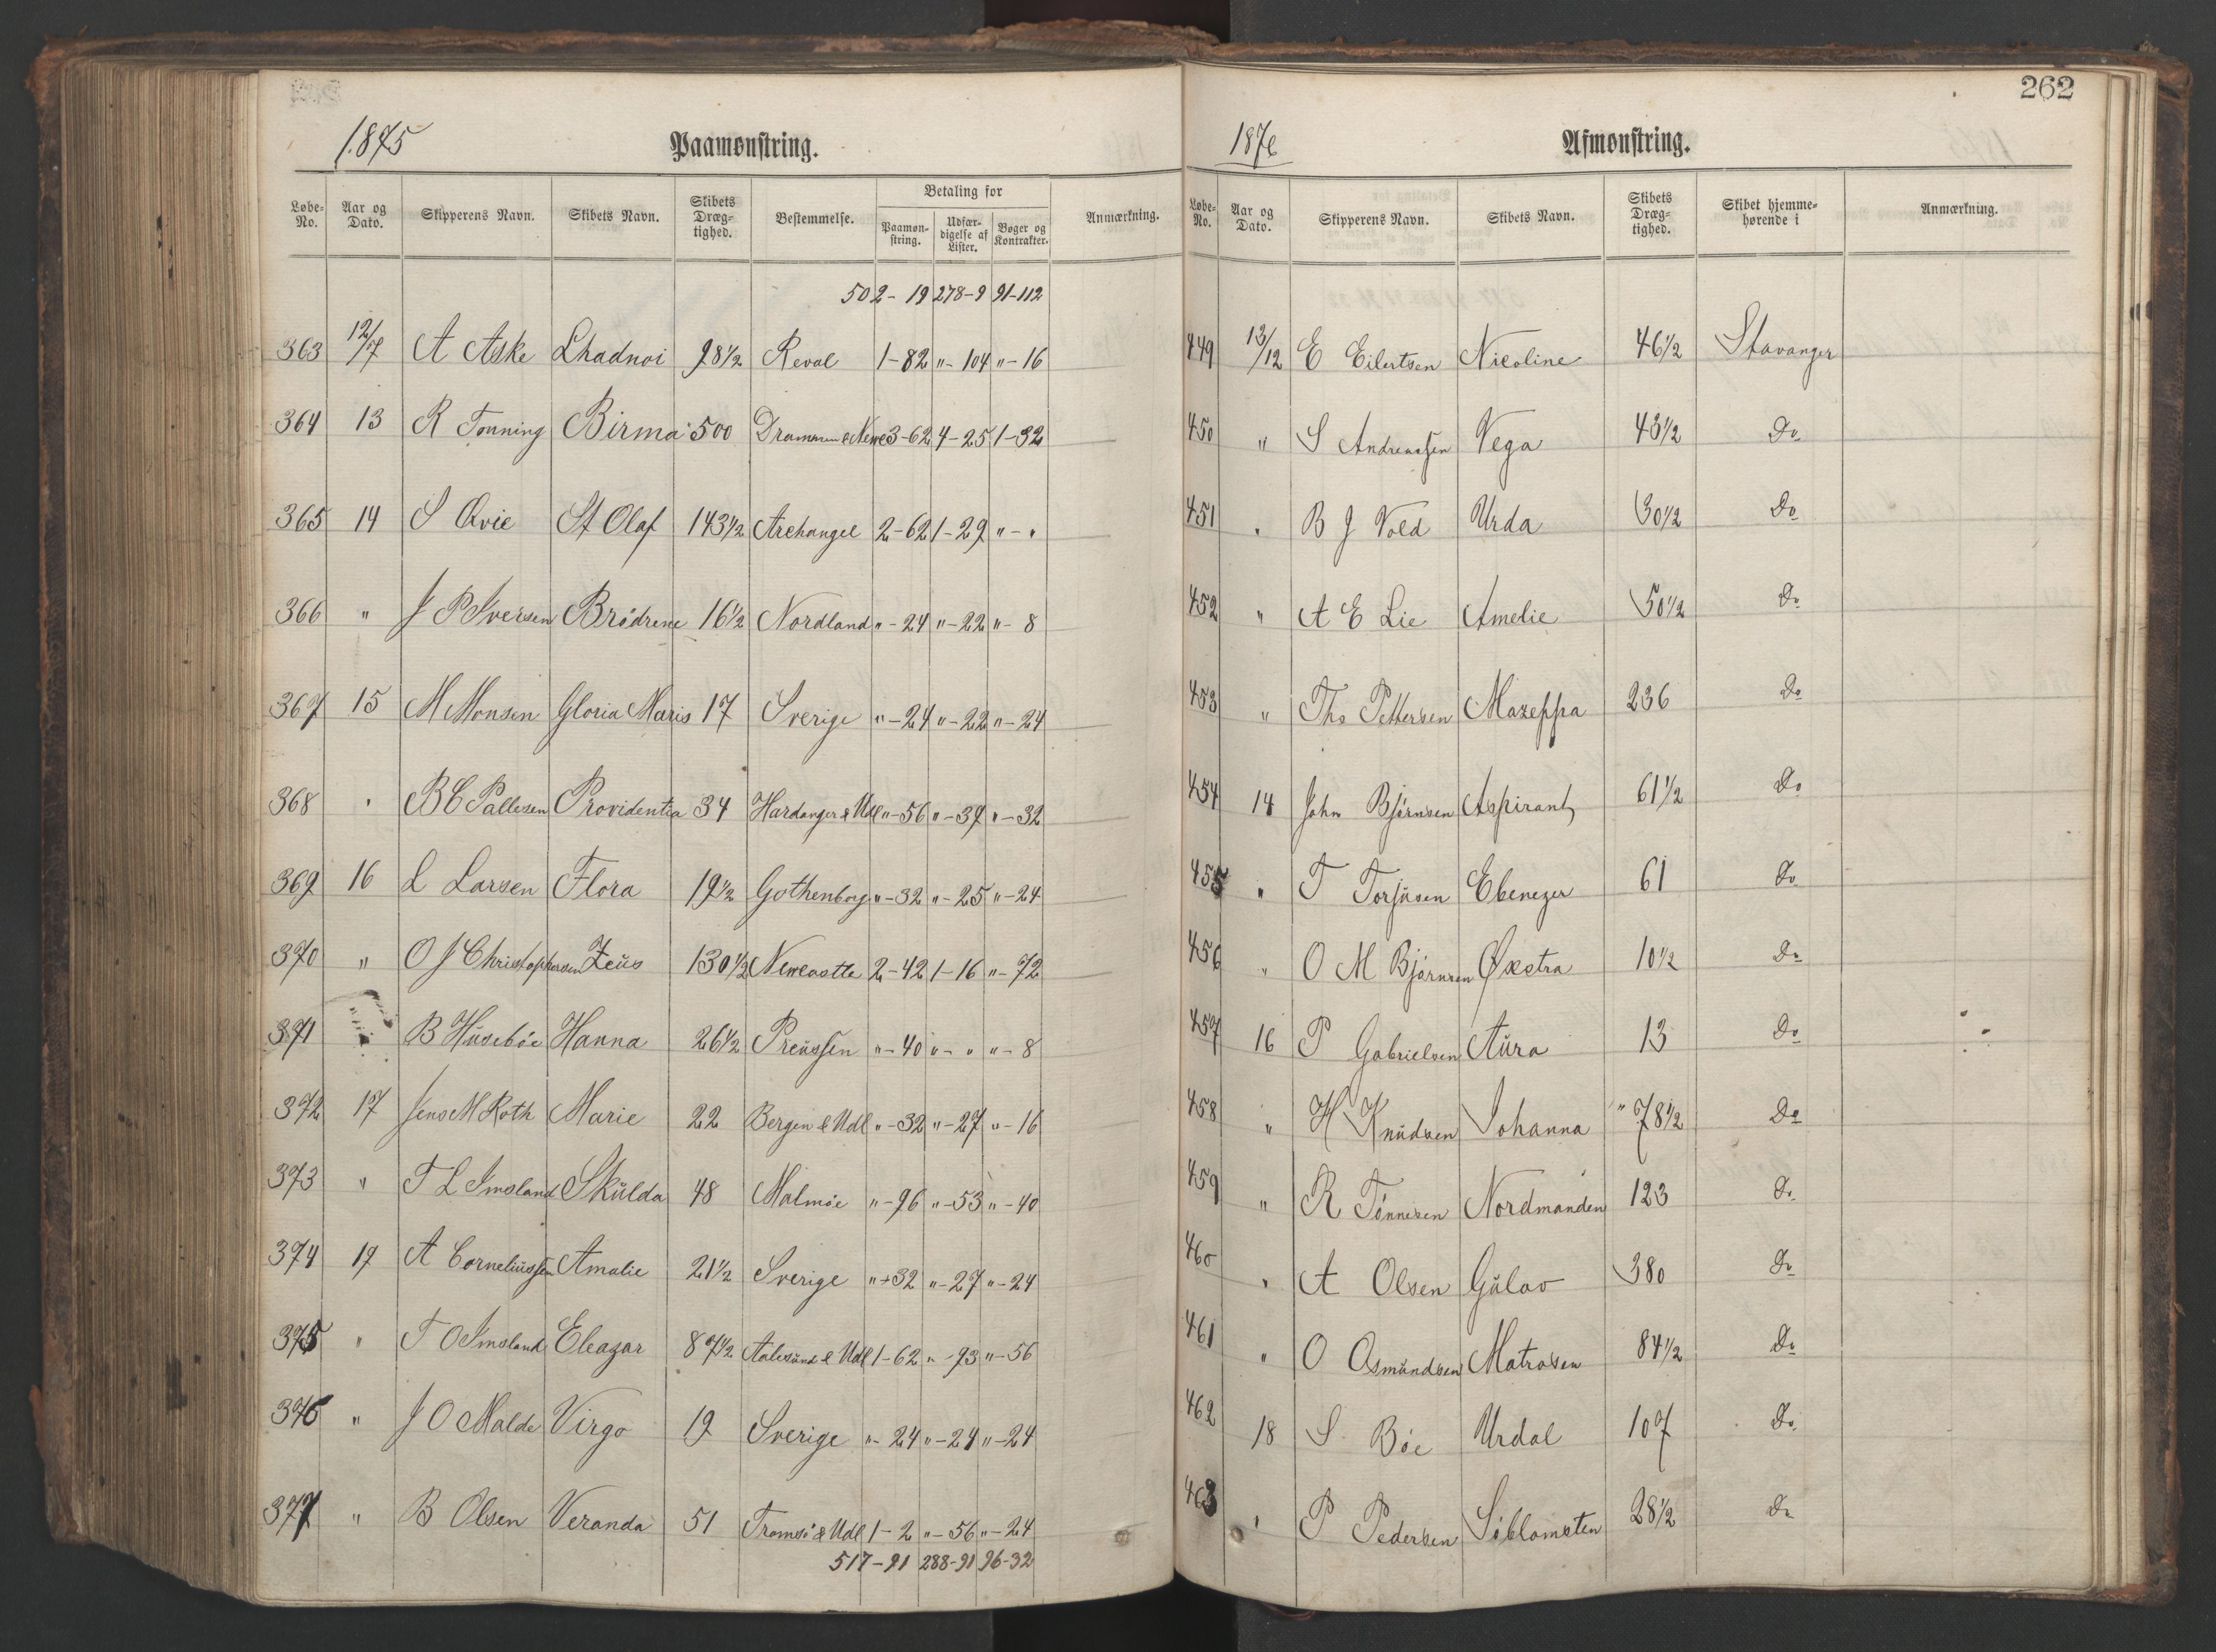 262
1875 Paamønstring.
Løbe-No. Aar og Dato. Skipperens Navn. Skibets Navn. Skibets Dræg-tighed. Bestemmelse. Betaling for Paamøn-string. Udfær-digelse af Lister. Bøger og Kontrakter. Anmærkning.
502-19 278-9 91-112
363 12/7 A Aske Lhadnoi 98½ Reval 1-82 "-104 "-16
364 13 R Tonning Birma 500 Drammen & Newc 3-62 4-25 1-32
365 14 S Qvie St Olaf 143½ Archangel 2-62 1-29 "-"
366 " J P Iversen Brødrene 16½ Nordland "-24 "-22 "-8
367 15 M Monsen Gloria Maris 17 Sverige "-24 "-22 "-24
368 " B C Pallesen Providentia 34 Hardanger & Udl "-56 "-39 "-32
369 16 L Larsen Flora 19½ Gothenborg "-32 "-25 "-24
370 " O J Christophersen Zeus 130½ Newcastle 2-42 1-16 "-72
371 " B Husebøe Hanna 26½ Preussen "-40 "-" "-8
372 17 Jens M Roth Marie 22 Bergen & Udl "-32 "-27 "-16
373 " T L Imsland Skulda 48 Malmøe "-96 "-53 "-40
374 19 A Corneliussen Amalie 21½ Sverige "-32 "-27 "-24
375 " T O Imsland Eleazar 87½ Aalesund & Udl 1-62 "-93 "-56
376 " J O Malde Virgo 19 Sverige "-24 "-24 "-24
377 " B Olsen Veranda 51 Tromsø & Udl 1-2 "-56 "-24
517-91 288-91 96-32
1876 Afmønstring.
Løbe-No. Aar og Dato. Skipperens Navn. Skibets Navn. Skibets Dræg-tighed. Skibet hjemme-hørende i Anmærkning.
449 13/12 E Eilertsen Nicoline 46½ Stavanger
450 " S Andreassen Vega 43½ Do
451 " B J Vold Urda 30½ Do
452 " A E Lie Amelie 50½ Do
453 " Ths Pettersen Mazeppa 236 Do
454 14 John Bjørnsen Aspirant 61½ Do
455 " T Torjusen Ebenezer 61 Do
456 " O M Bjørnsen Øxstra 10½ Do
457 16 P Gabrielsen Aura 13 Do
458 " H Knudsen Johanna 78½ Do
459 " R Tønnesen Nordmanden 123 Do
460 " A Olsen Gulao 380 Do
461 " O Osmundsen Matrosen 84½ Do
462 18 S Bøe Urdal 107 Do
463 " P Pedersen Søblomsten 28½ Do